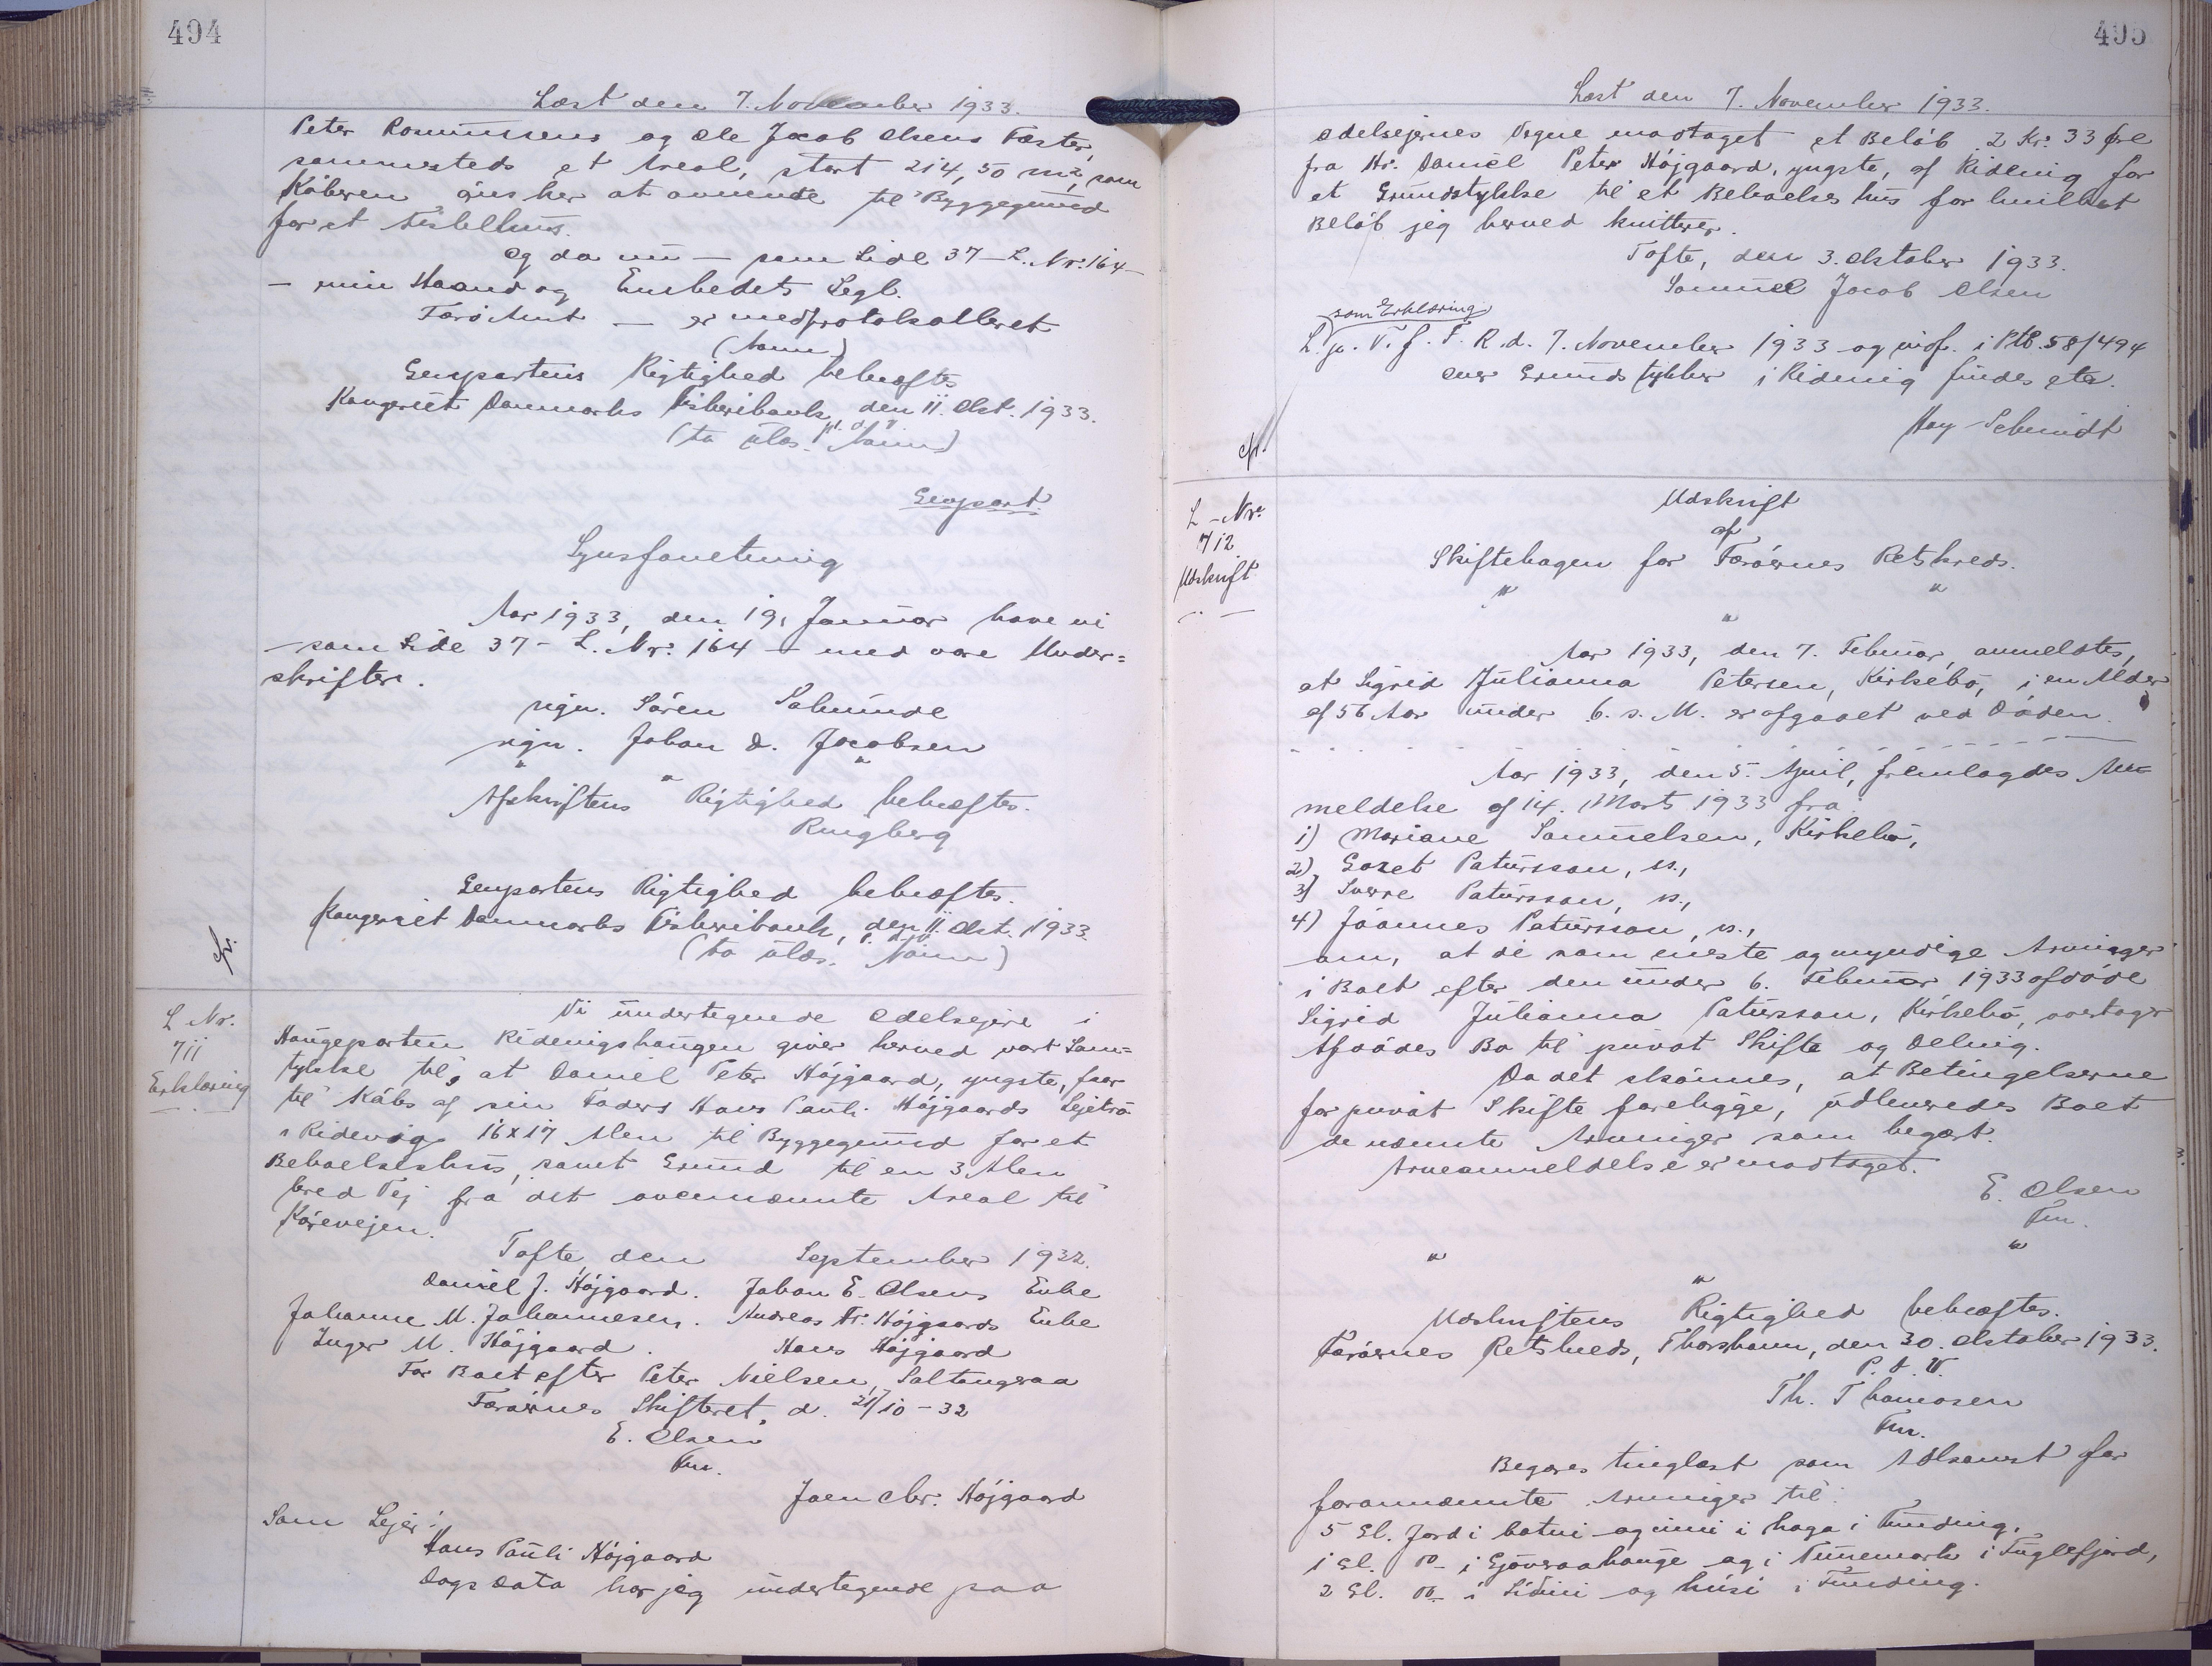 494
Læst den 7. November 1933.
Peter Rasmussens og Ole Jacob Olsens Fæster,
sammesteds et Areal, stort 214,50 m², som
Køberen ønsker at anvende til Byggegrund
for et Fiskehus.
Og da nu — som Side 37 – L. Nr. 164 –
– min Haand og Embedets Segl.
Færø Amt — er medprotokolleret
(Navn)
Genpartens Rigtighed bekræftes
Kongeriget Danmarks Fiskeribank, den 11. Okt. 1933.
p. d. V.
(to ulæs. Navn)
Genpart.
Synsforretning
Aar 1933, den 19. Januar have vi
– som Side 37 – L. Nr. 164 – med vore Under=
skrifter.
sign. Sören
sign. Johan D. Jacobsen
" " "
Afskriftens Rigtighed bekræftes.
Ringberg
Genpartens Rigtighed bekræftes.
Kongeriget Danmarks Fiskeribank, den 11. Okt. 1933.
p. d. V.
(to ulæs. Navn)
L Nr.
711
Erklæring
Vi undertegnede Odelsejere i
Haugeparten Ridevigshaugen giver herved vort Sam=
tykke til, at Daniel Peter Højgaard, yngste, faar
til Købs af sin Faders Hans Pauli Højgaards Lejetrø
i Ridevig 16 x 17 Alen til Byggegrund for et
Beboelseshus, samt Grund til en 3 Alen
bred Vej fra det ovennævnte Areal til
Kørevejen.
Tofte, den September 1932.
Daniel J. Højgaard. Johan E. Olsens Enke
Johanne M. Johannesen. Andreas Fr. Højgaards Enke
Inger M. Højgaard. Hans Højgaard
For Boet efter Peter Nielsen, Saltangeraa
Færøernes Skifteret, d. 21/10 – 32
E. Olsen
Fm.
Joen Chr. Højgaard
Som Lejer:
Hans Pauli Højgaard
Dags Dato har jeg undertegnede paa
495
Læst den 7. November 1933.
Odelsejernes Vegne modtaget et Beløb 2 Kr. 33 Øre
fra Hr. Daniel Peter Højgaard, yngste, af Ridevig for
et Grundstykke til et Beboelseshus for hvilket
Beløb jeg herved kvitterer.
Tofte, den 3. Oktober 1933.
Samuel Jacob Olsen
som Erklæring
L. p. V. f. F. R. d. 7. November 1933 og indf. i Ptb. 58/494
over Grundstykker i Ridevig findes etc.
Hay-Schmidt
L – Nr.
712
Udskrift
Udskrift
af
Skiftebogen for Færøernes Retskreds.
" " "
Aar 1933, den 7. Februar, anmeldtes,
at Sigrid Julianna Petersen, Kirkebø, i en Alder
af 56 Aar under 6. s. M. er afgaaet ved Døden.
Aar 1933, den 5. April, fremlagdes An=
meldelse af 14. Marts 1933 fra
1) Mariane Samuelsen, Kirkebø,
2) Gazet Patursson, ss.,
3) Sverre Patursson, ss.,
4) Jóannes Patursson, ss.,
om, at de som eneste og myndige Arvinger
i Boet efter den under 6. Februar 1933 afdøde
Sigrid Julianna Patursson, Kirkebø, overtager
Afdødes Bo til privat Skifte og Deling.
Da det skønnes, at Betingelserne
for privat Skifte foreligge, udleveredes Boet
de nævnte Arvinger som begært.
Arveanmeldelse er modtaget.
E. Olsen
Fm.
" " "
Udskriftens Rigtighed bekræftes.
Færøernes Retskreds, Thorshavn, den 30. Oktober 1933.
P. d. V.
Th. Thomasen
Fm.
Begæres tinglæst som Adkomst for
forannævnte Arvinger til:
5 Gl. Jord i botni og inni i haga i Funding,
1 Gl. do – i Gjóveraahauge og i Tunemark i Fuglefjord,
2 Gl. do – i Lidini og húsi i Funding.